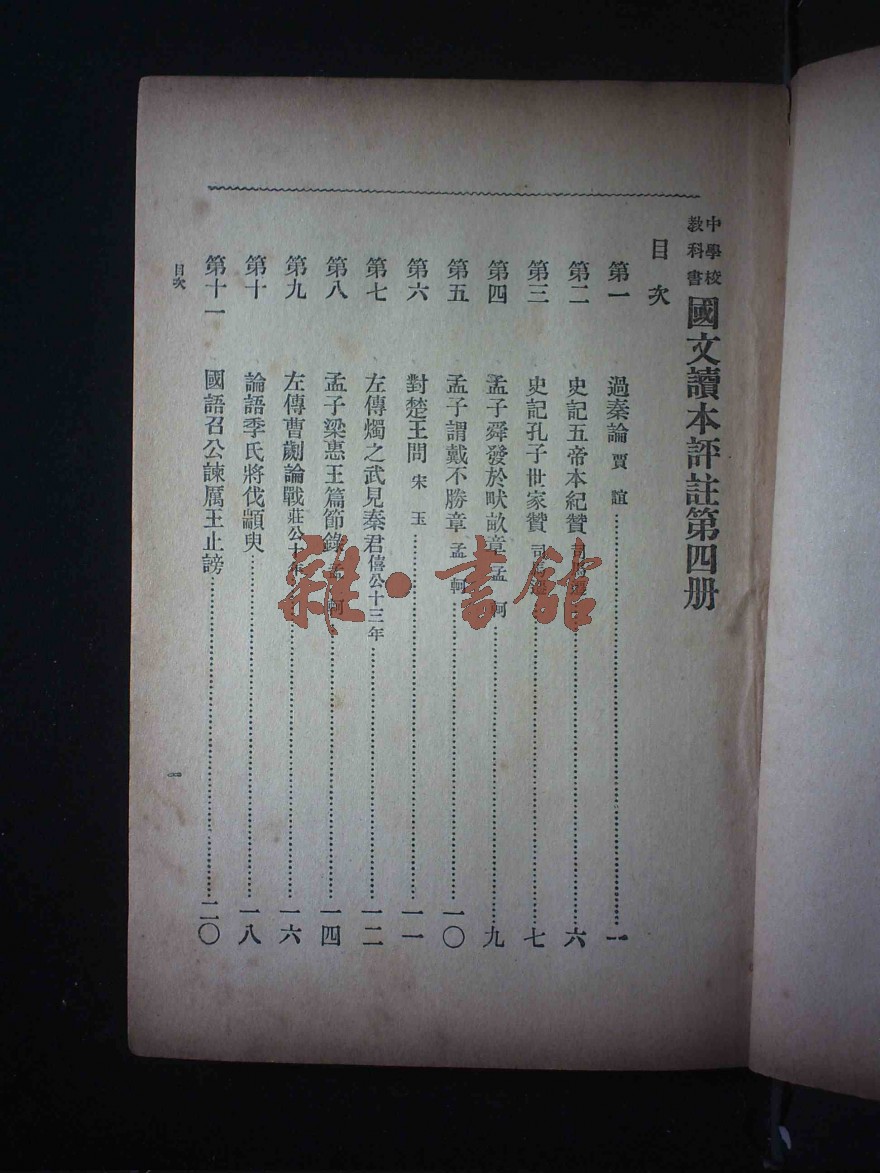 中學校
教科書
國文讀本評註第四册
目次
第一 過秦論 賈誼 一
第二 史記五帝本紀贊 司馬遷 六
第三 史記孔子世家贊 司馬遷 七
第四 孟子舜發於畎畝章 孟軻 九
第五 孟子謂戴不勝章 孟軻 一〇
第六 對楚王問 宋玉 一一
第七 左傳燭之武見秦君 僖公十三年 一二
第八 孟子梁惠王篇節錄 孟軻 一四
第九 左傳曹劌論戰 莊公十年 一六
第十 論語季氏將伐顓臾 一八
第十一 國語召公諫厲王止謗 二〇
目次
一
雜·書館